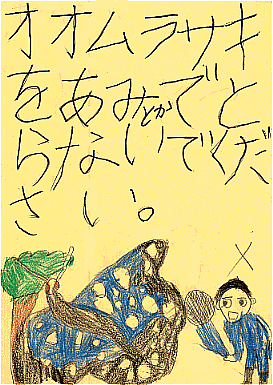 オオムラサキ
をあみとかでと
らないでくだ
さい。